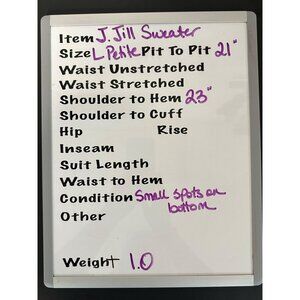 Item J. Jill Sweater
Size L Petite Pit To Pit 21"
Waist Unstretched
Waist Stretched
Shoulder to Hem 23"
Shoulder to Cuff
Hip Rise
Inseam
Suit Length
Waist to Hem
Condition Small spots on
bottom
Other
Weight 1.0